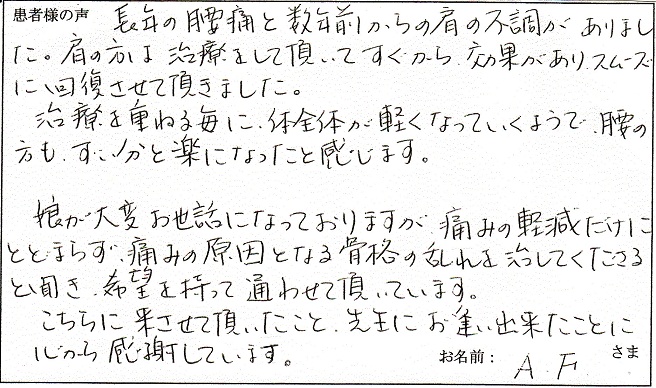 患者様の声
長年の腰痛と数年前からの肩の不調がありまし
た。肩の方は治療をして頂いてすぐから、効果があり、スムーズ
に回復させて頂きました。
治療を重ねる毎に、体全体が軽くなっていくようで、腰の
方も、ずい分と楽になったと感じます。
娘が大変お世話になっておりますが、痛みの軽減だけに
とどまらず、痛みの原因となる骨格の乱れを治してくださる
と聞き、希望を持って通わせて頂いています。
こちらに来させて頂いたこと、先生にお逢い出来たことに
心から感謝しています。
お名前： A.F. さま